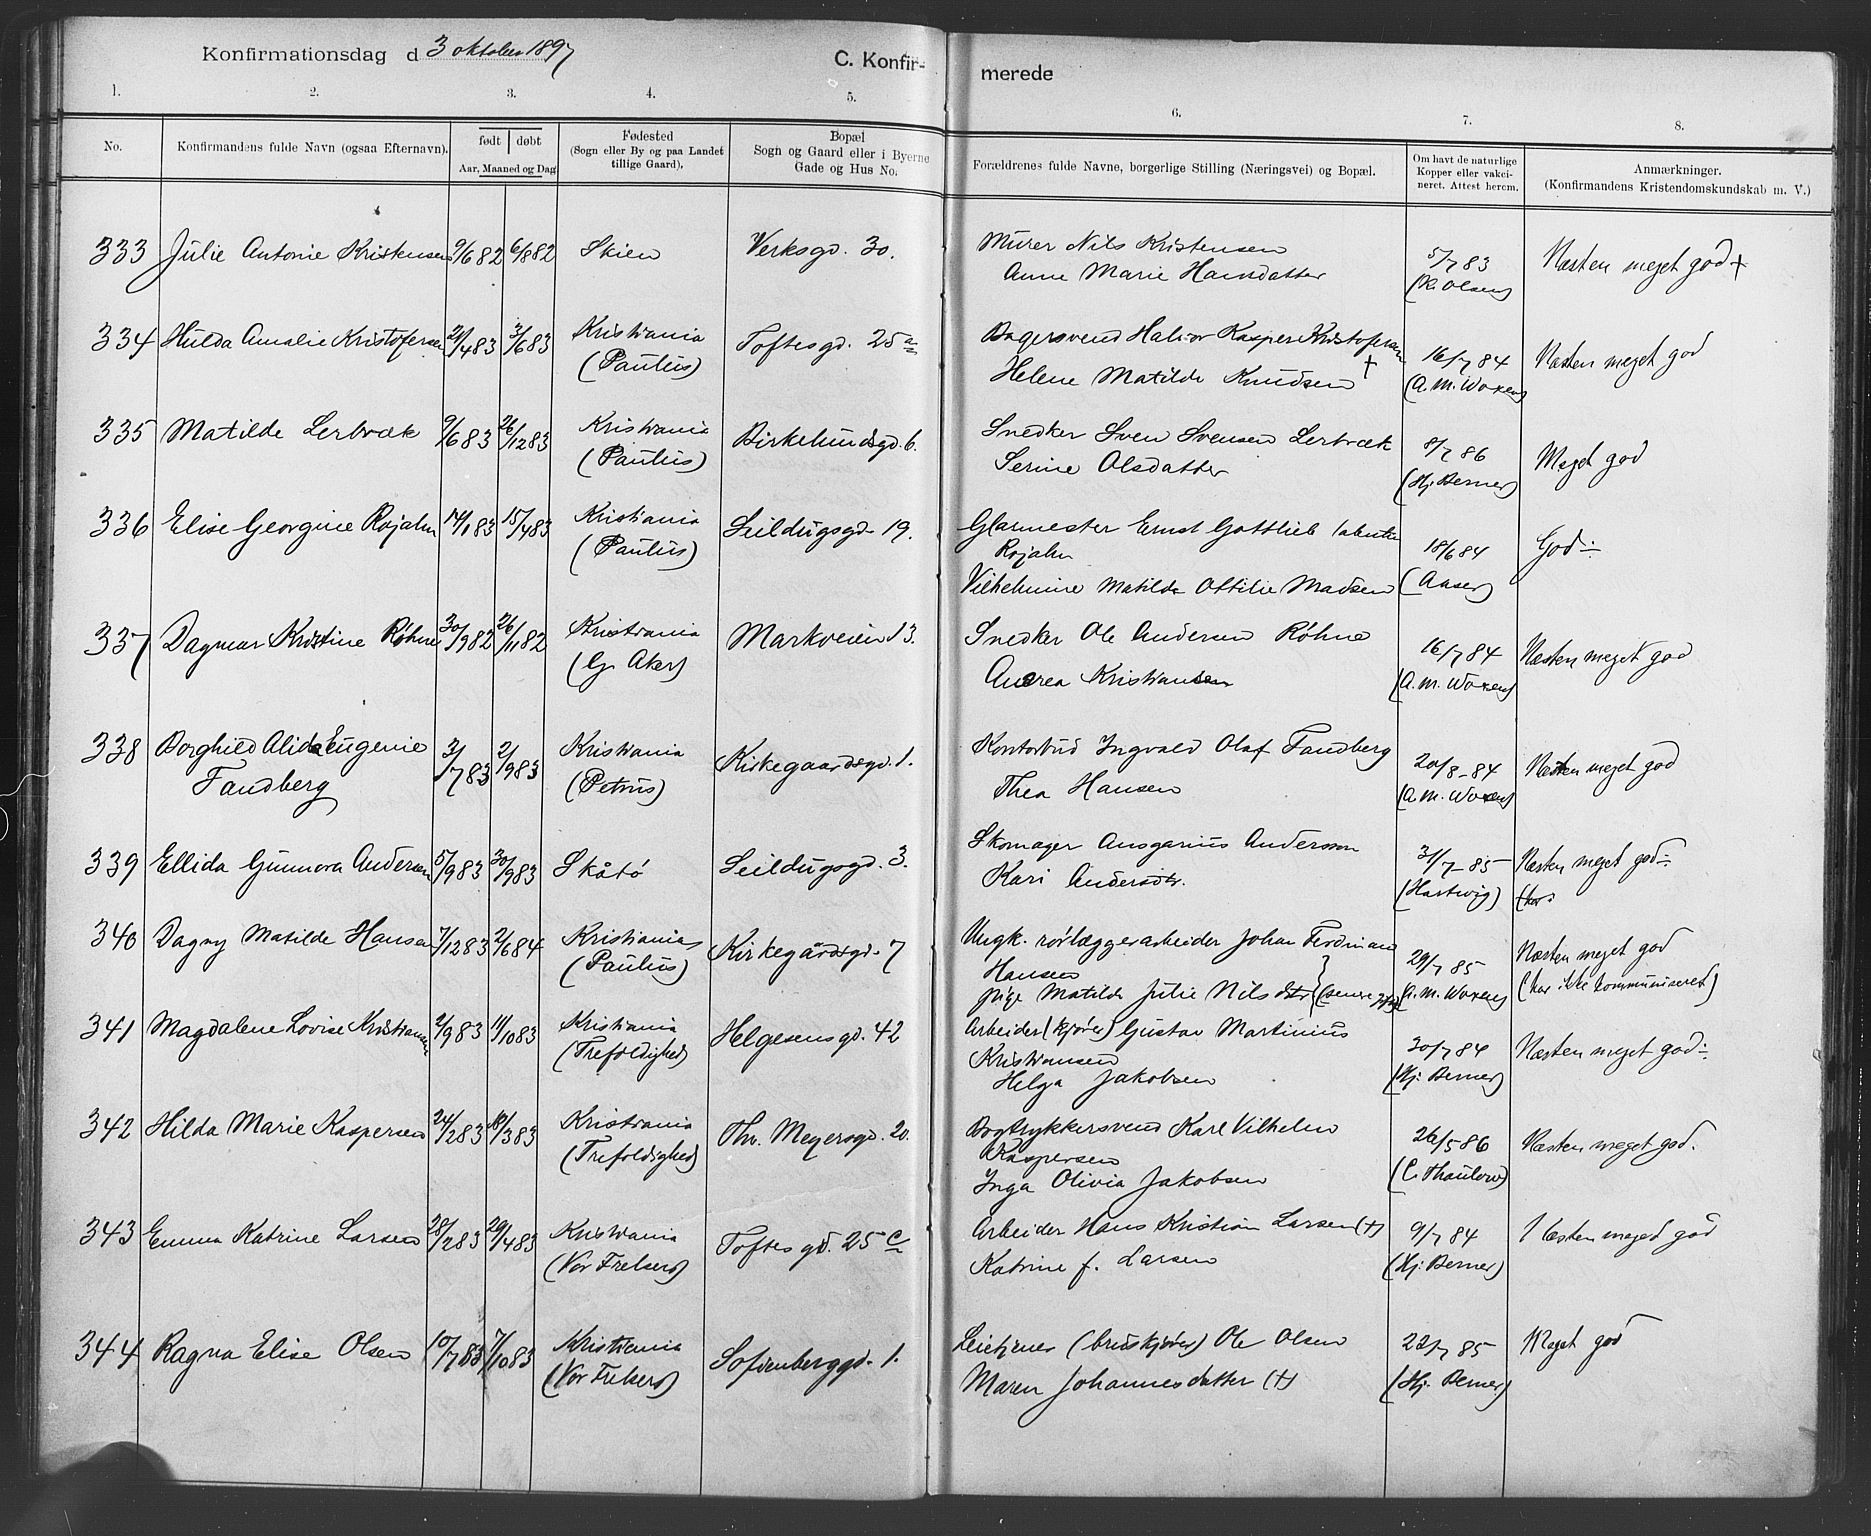 Konfirmationsdag d 3 oktober 1897
C. Konfir- merede
1. 2. 3. 4. 5. 6. 7. 8.
No.
Konfirmandens fulde Navn (ogsaa Efternavn).
født døbt
Aar, Maaned og Dag
Fødested
(Sogn eller By og paa Landet
tillige Gaard).
Bopæl
Sogn og Gaard eller i Byerne
Gade og Hus No.
Forældrenes fulde Navne, borgerlige Stilling (Næringsvei) og Bopæl.
Om havt de naturlige
Kopper eller vakci-
neret. Attest herom.
Anmærkninger.
(Konfirmandens Kristendomskundskab m. V.)
333 Julie Antonie Kristensen 9/6 82 6/8 82 Skien Verksgd. 30. Murer Nils Kristensen 5/7 83 Næsten meget god +
Anne Marie Hansdatter (K. Olsen)
334 Hulda Amalie Kristofersen 21/4 83 3/6 83 Kristiania Toftesgd. 25 a Bagersvend Halvor Kasper Kristofersen 16/7 84 Næsten meget god
(Paulus) Helene Matilde Knudsen + (A. M. Woxen)
335 Matilde Lerbræk 9/6 83 26/12 83 Kristiania Birkelundsgd. 6. Snedker Sven Svensen Lerbræk 8/7 86 Meget god
(Paulus) Serine Olsdatter (Hj. Berner)
336 Elise Georgine Rojahn 14/1 83 15/4 83 Kristiania Seildugsgd. 19. Glarmester Ernst Gottlieb 18/6 84 God ÷
(Paulus) Rojahn (Aaser)
Vilhelmine Matilde Ottilie Madsen
337 Dagmar Kristine Røhne 30/9 82 26/11 82 Kristiania Markveien 13. Snedker Ole Andersen Røhne 16/7 84 Næsten meget god
(G. Aker) Andrea Kristiansen (A. M. Woxen)
338 Borghild Alida Eugenie 3/7 83 2/9 83 Kristiania Kirkegaardsgd. 1. Kontorbud Ingvald Olaf Tandberg 20/8 - 84 Næsten meget god
Tandberg (Petrus) Thea Hansen (A. M. Woxen)
339 Ellida Gunnora Andersen 5/9 83 30/9 83 Skåtø Seildugsgd. 3. Skomager Ansgarius Andersson 31/7 - 85 Næsten meget god ÷
Kari Andersdtr. (Hartwig) (har
340 Dagny Matilde Hansen 7/12 83 2/6 84 Kristiania Kirkegårdsgd. 7 Ungk. rørlæggerarbeider Johan Ferdinand 29/7 85 Næsten meget god
(Paulus) Hansen (A. M. Woxen) (har ikke kommuniseret)
pige Matilde Julie Nilsdtr (senere gift)
341 Magdalene Lovise Kristiansen 2/9 83 11/10 83 Kristiania Helgesensgd. 42 Arbeider (kjører) Gustav Martinius 30/7 84 Næsten meget god ÷
(Trefoldighed) Kristiansen (Hj. Berner)
Helga Jakobsen
342 Hilda Marie Kaspersen 24/2 83 18/3 83 Kristiania Th. Meyersgd. 20. Bogtrykkersvend Karl Vilhelm 26/5 86 Næsten meget god.
(Trefoldighed) Kaspersen (C. Thaulow)
Inga Olivia Jakobsen
343 Emma Katrine Larsen 28/2 83 29/4 83 Kristiania Toftesgd. 25 c Arbeider Hans Kristian Larsen (+) 9/7 84 Næsten meged god
(Vor Frelsers) Katrine f. Larsen (Hj. Berner)
344 Ragna Elise Olsen 10/7 83 7/10 83 Kristiania Sofienberggd. 1. Leietjener (brudskjører) Ole Olsen 22/7 85 Meget god
(Vor Frelsers) Maren Johannesdatter (+) (Hj. Berner)